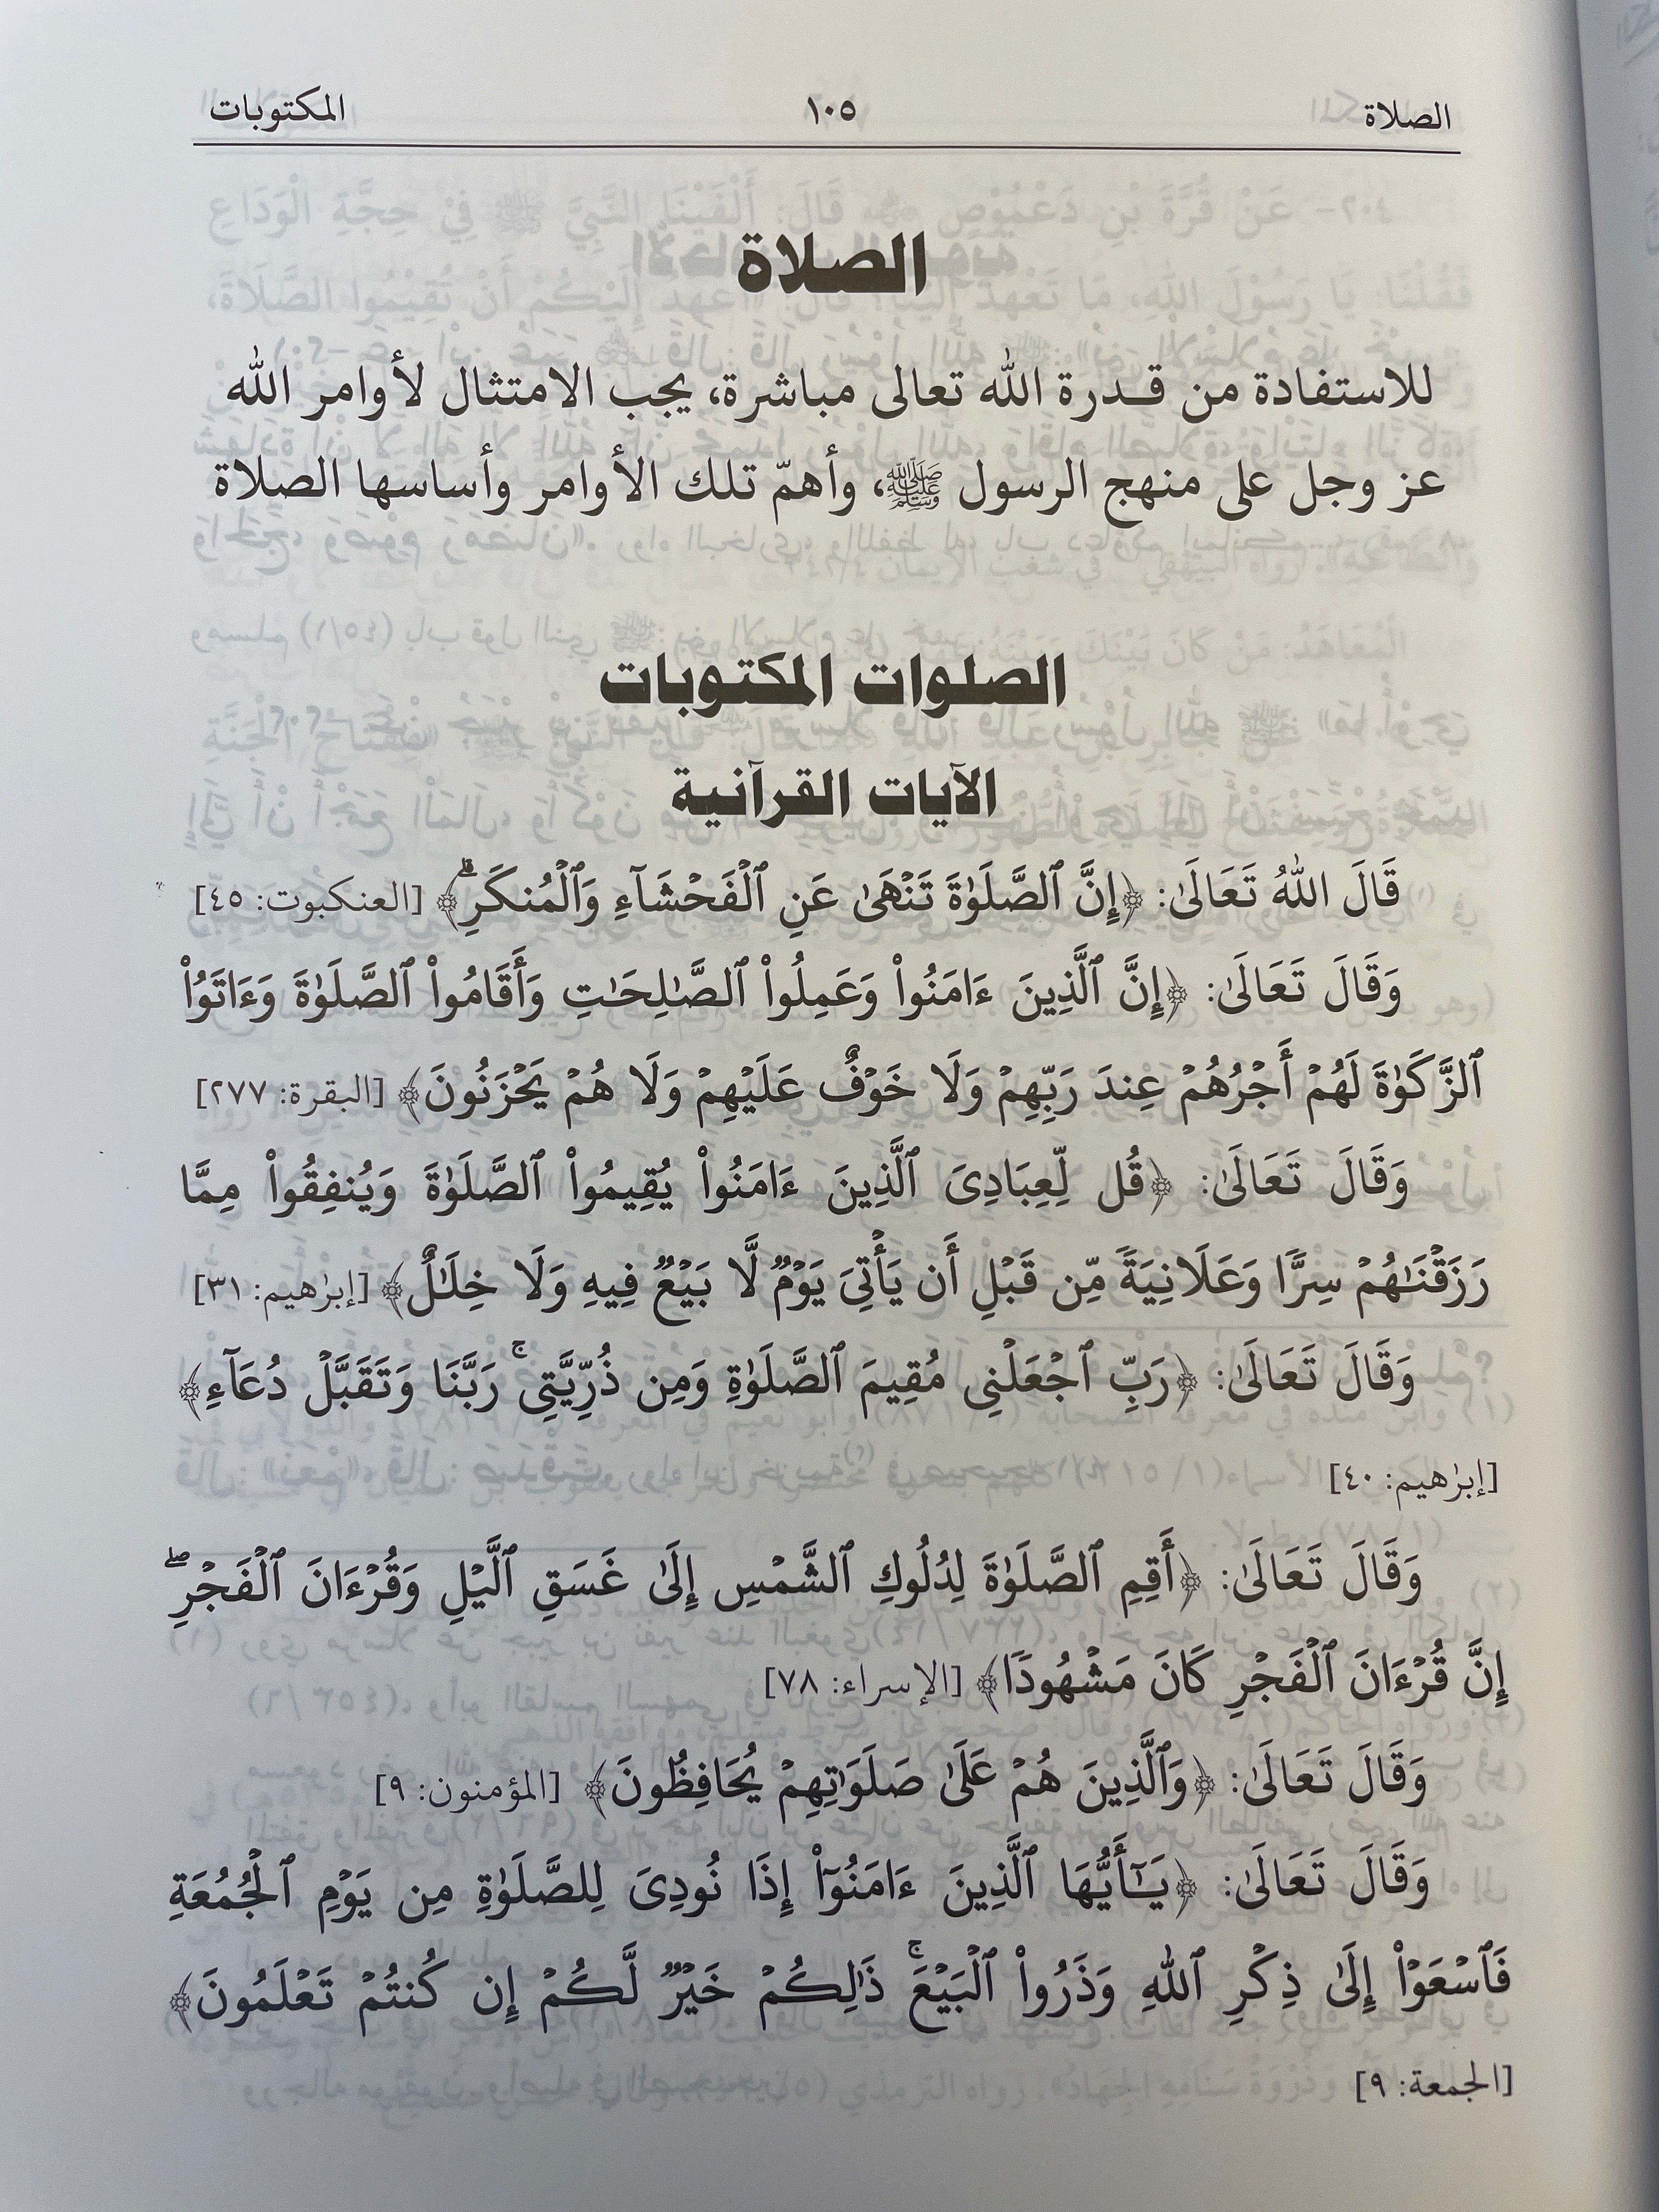 الصلاة ١٠٥ المكتوبات
الصلاة
للاستفادة من قدرة الله تعالى مباشرة، يجب الامتثال لأوامر الله
عز وجل على منهج الرسول ﷺ، وأهمّ تلك الأوامر وأساسها الصلاة
الصلوات المكتوبات
الآيات القرآنية
قَالَ اللهُ تَعَالَىٰ: ﴿إِنَّ ٱلصَّلَوٰةَ تَنْهَىٰ عَنِ ٱلْفَحْشَآءِ وَٱلْمُنكَرِۗ﴾ [العنكبوت: ٤٥]
وَقَالَ تَعَالَىٰ: ﴿إِنَّ ٱلَّذِينَ ءَامَنُوا۟ وَعَمِلُوا۟ ٱلصَّـٰلِحَـٰتِ وَأَقَامُوا۟ ٱلصَّلَوٰةَ وَءَاتَوُا۟
ٱلزَّكَوٰةَ لَهُمْ أَجْرُهُمْ عِندَ رَبِّهِمْ وَلَا خَوْفٌ عَلَيْهِمْ وَلَا هُمْ يَحْزَنُونَ﴾ [البقرة: ٢٧٧]
وَقَالَ تَعَالَىٰ: ﴿قُل لِّعِبَادِىَ ٱلَّذِينَ ءَامَنُوا۟ يُقِيمُوا۟ ٱلصَّلَوٰةَ وَيُنفِقُوا۟ مِمَّا
رَزَقْنَـٰهُمْ سِرًّا وَعَلَانِيَةً مِّن قَبْلِ أَن يَأْتِىَ يَوْمٌ لَّا بَيْعٌ فِيهِ وَلَا خِلَـٰلٌ﴾ [إبرٰهيم: ٣١]
وَقَالَ تَعَالَىٰ: ﴿رَبِّ ٱجْعَلْنِى مُقِيمَ ٱلصَّلَوٰةِ وَمِن ذُرِّيَّتِىۚ رَبَّنَا وَتَقَبَّلْ دُعَآءِ﴾
[إبرٰهيم: ٤٠]
وَقَالَ تَعَالَىٰ: ﴿أَقِمِ ٱلصَّلَوٰةَ لِدُلُوكِ ٱلشَّمْسِ إِلَىٰ غَسَقِ ٱلَّيْلِ وَقُرْءَانَ ٱلْفَجْرِۖ
إِنَّ قُرْءَانَ ٱلْفَجْرِ كَانَ مَشْهُودًا﴾ [الإسراء: ٧٨]
وَقَالَ تَعَالَىٰ: ﴿وَٱلَّذِينَ هُمْ عَلَىٰ صَلَوَٰتِهِمْ يُحَافِظُونَ﴾ [المؤمنون: ٩]
وَقَالَ تَعَالَىٰ: ﴿يَـٰٓأَيُّهَا ٱلَّذِينَ ءَامَنُوٓا۟ إِذَا نُودِىَ لِلصَّلَوٰةِ مِن يَوْمِ ٱلْجُمُعَةِ
فَٱسْعَوْا۟ إِلَىٰ ذِكْرِ ٱللهِ وَذَرُوا۟ ٱلْبَيْعَۚ ذَٰلِكُمْ خَيْرٌ لَّكُمْ إِن كُنتُمْ تَعْلَمُونَ﴾
[الجمعة: ٩]